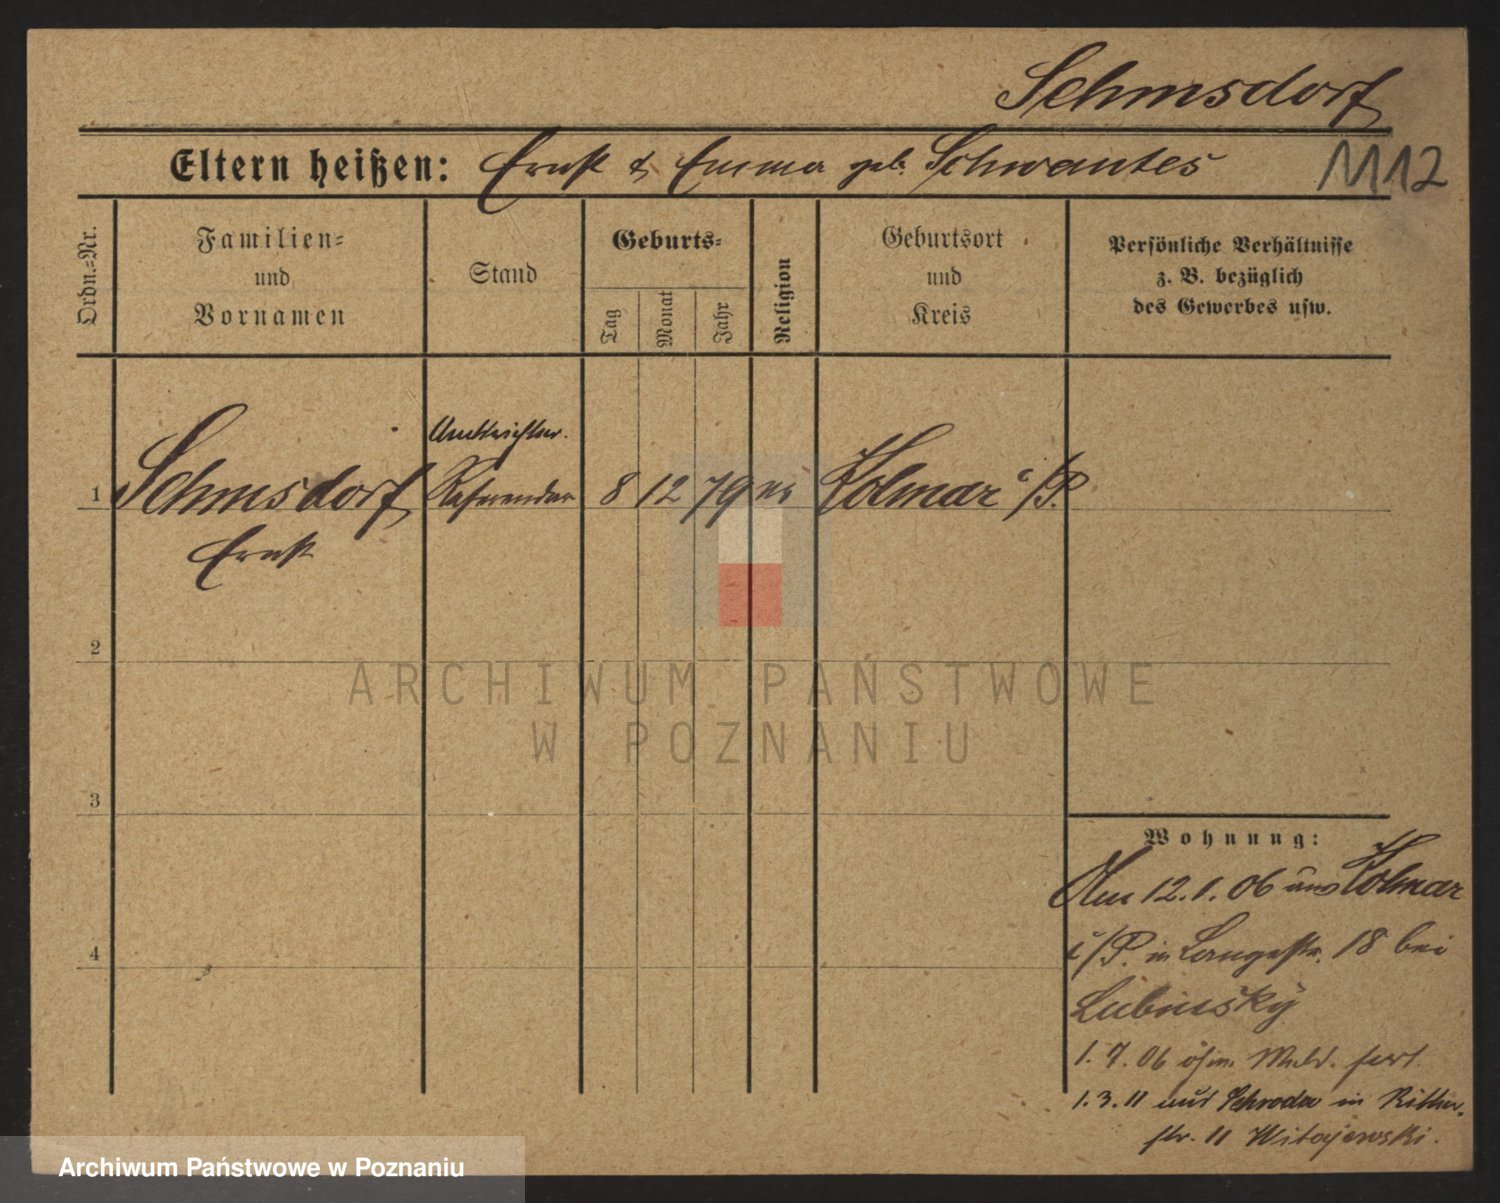 Sehmsdorf
Eltern heißen: Ernst & Emma geb. Schwantes
1112
Ordn.-Nr.
Familien-
und
Vornamen
Stand
Geburts-
Tag
Monat
Jahr
Religion
Geburtsort
und
Kreis
Persönliche Verhältnisse
z. B. bezüglich
des Gewerbes usw.
Amtsrichter.
1 Sehmsdorf Referendar 8 12 79 ev Kolmar i/P.
Ernst
2
ARCHIWUM PAŃSTWOWE
W POZNANIU
3
Wohnung:
Am 12.1.06 aus Kolmar
i/P. in Langestr. 18 bei
4
Lubinsky
1.7.06 ohne Meld. fort
1.3.11 aus Schroda in Ritter-
str. 11 Witajewski.
Archiwum Państwowe w Poznaniu